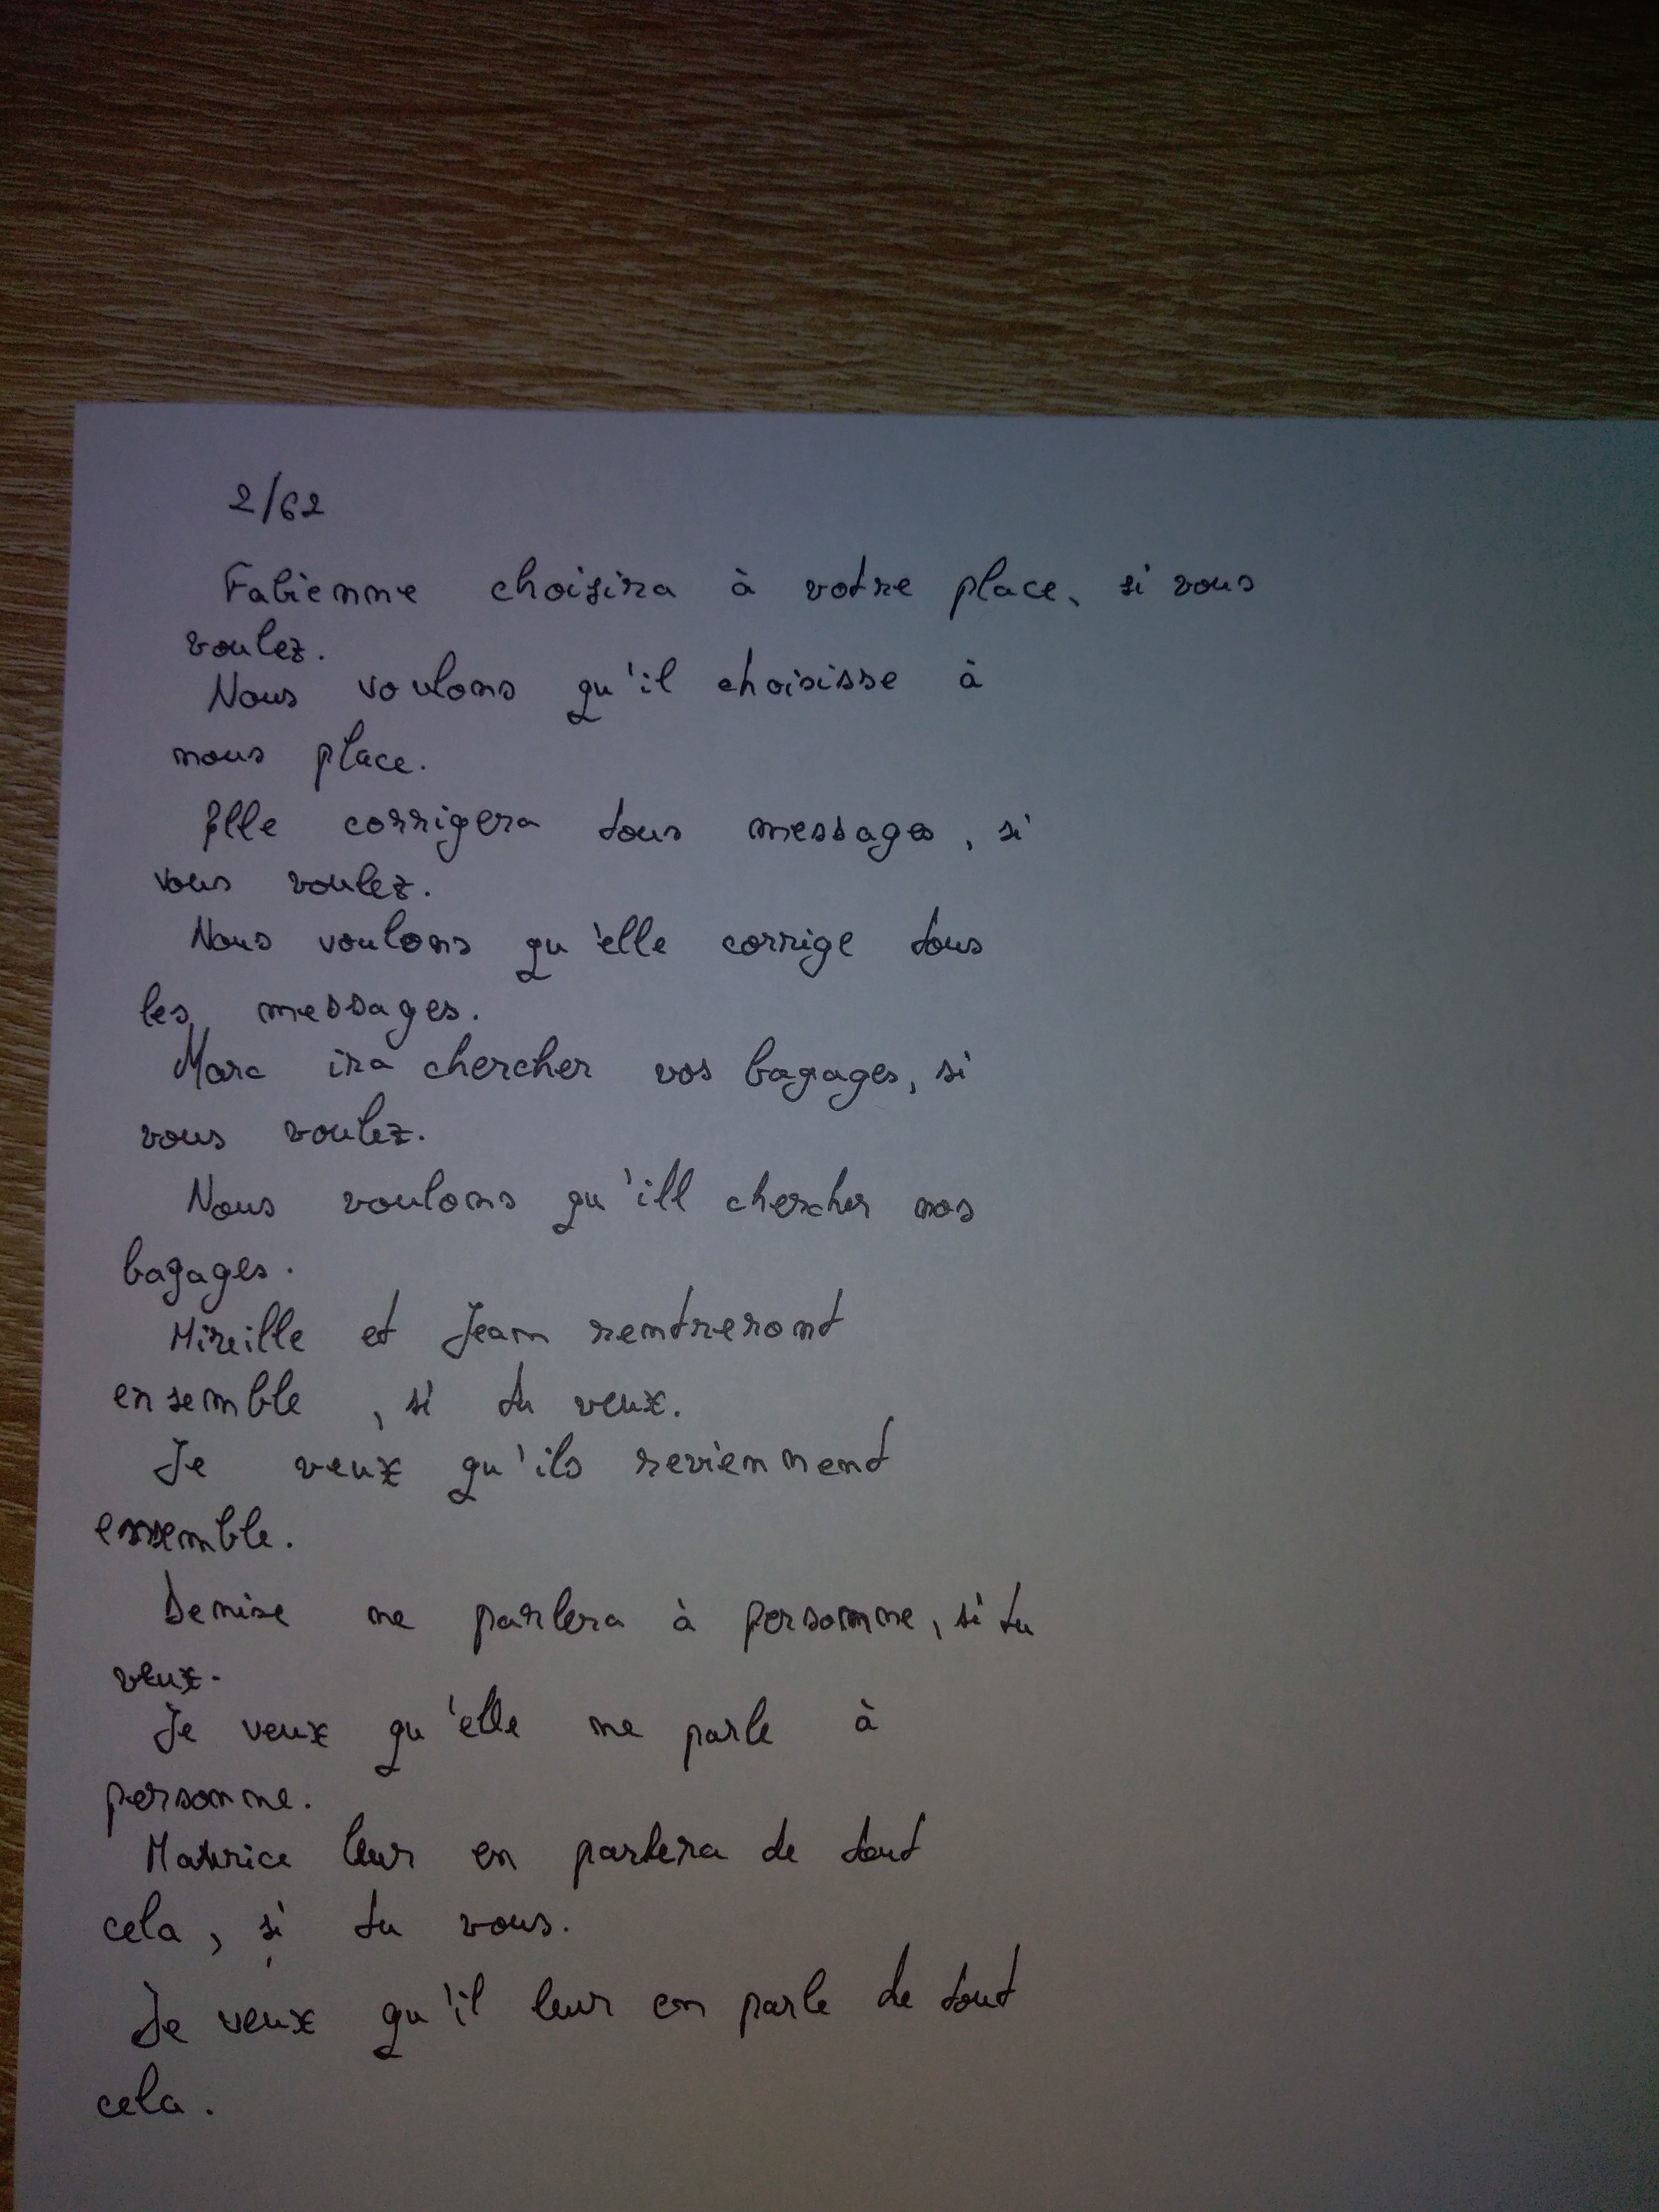 2/62
Fabienne choisira à votre place, si vous
voulez.
Nous voulons qu'il choisisse à
nous place.
Elle corrigera tous messages, si
vous voulez.
Nous voulons qu'elle corrige tous
les messages.
Marc ira chercher vos bagages, si
vous voulez.
Nous voulons qu'ill chercher nos
bagages.
Mireille et Jean rentreront
ensemble, si tu veux.
Je veux qu'ils reviennent
ensemble.
Denise ne parlera à personne, si tu
veux.
Je veux qu'elle ne parle à
personne.
Maurice leur en parlera de tout
cela, si tu vous.
Je veux qu'il leur en parle de tout
cela.